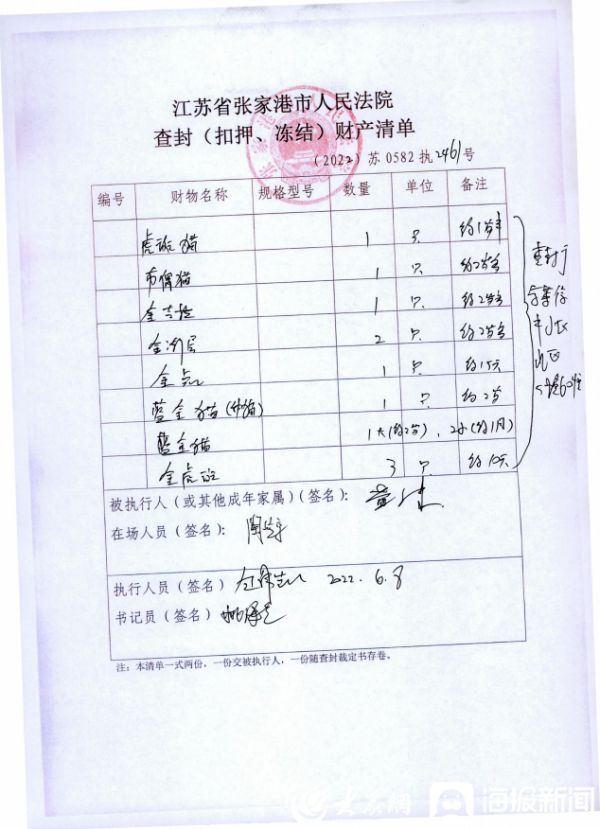 江苏省张家港市人民法院
查封（扣押、冻结）财产清单
（2022）苏 0582 执 2461 号
编号 财物名称 规格型号 数量 单位 备注
虎斑猫 1 只 约1岁半
布偶猫 1 只 约2岁多
金吉拉 1 只 约2岁多
金渐层 2 只 约2岁多
金点 1 只 约15天
蓝金猫 1 只 约2岁
蓝金猫 1大(约2岁)、2小(约1月)
金虎斑 3 只 约10天
查封于
被执行人（或其他成年家属）(签名)：
在场人员（签名）：
执行人员（签名） 2022.6.8
书记员（签名）
注：本清单一式两份，一份交被执行人，一份随查封裁定书存卷。
大众网 海报新闻